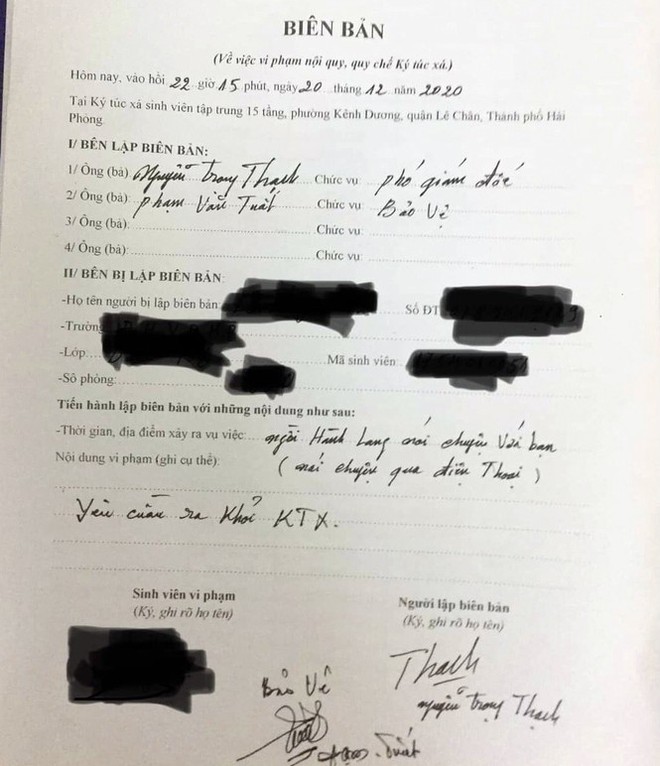 BIÊN BẢN
(Về việc vi phạm nội quy, quy chế Ký túc xá.)
Hôm nay, vào hồi 22 giờ 15 phút, ngày 20 tháng 12 năm 2020
Tại Ký túc xá sinh viên tập trung 15 tầng, phường Kênh Dương, quận Lê Chân, Thành phố Hải
Phòng
I/ BÊN LẬP BIÊN BẢN:
1/ Ông (bà) Nguyễn Trọng Thạch Chức vụ: phó giám đốc
2/ Ông (bà): Phạm Văn Tuất Chức vụ: Bảo Vệ
3/ Ông (bà): Chức vụ:
4/ Ông (bà): Chức vụ:
II/ BÊN BỊ LẬP BIÊN BẢN
-Họ tên người bị lập biên bản: Số ĐT
-Trường
-Lớp Mã sinh viên:
-Số phòng:
Tiến hành lập biên bản với những nội dung như sau:
-Thời gian, địa điểm xảy ra vụ việc: ngồi Hành Lang nói chuyện Với bạn
Nội dung vi phạm (ghi cụ thể): (nói chuyện qua điện Thoại)
Yêu cầu ra khỏi KTX.
Sinh viên vi phạm
(Ký, ghi rõ họ tên)
Người lập biên bản
(Ký, ghi rõ họ tên)
Thạch
Nguyễn Trọng Thạch
Bảo Vệ
Tuất